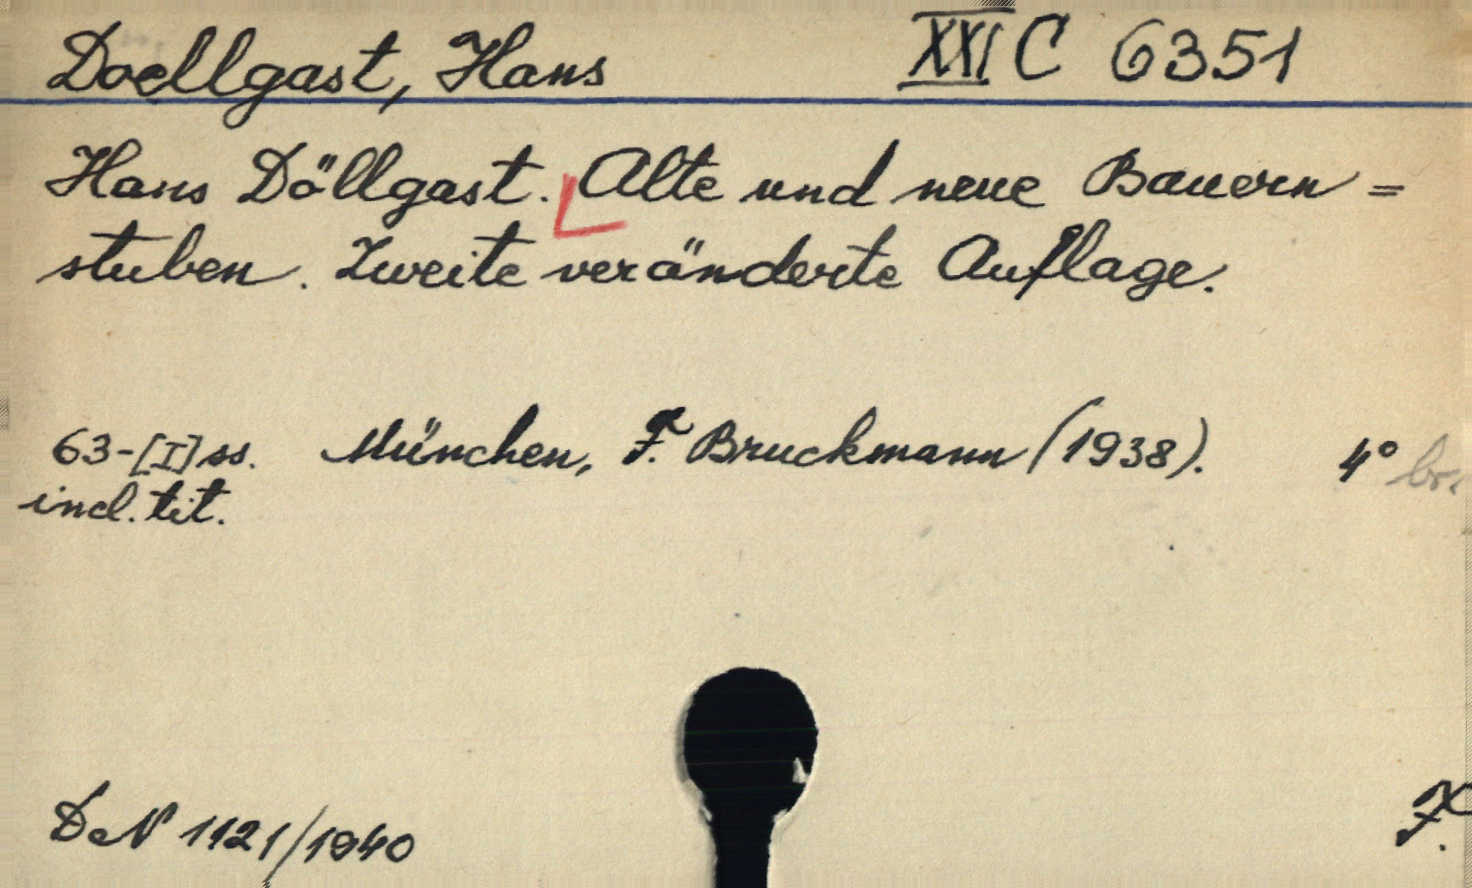 Doellgast, Hans XXI C 6351
Hans Döllgast. Alte und neue Bauern=
stuben. Zweite veränderte Auflage.
63-[I] ss. München, F. Bruckmann (1938). 4° br.
incl. tit.
DeN 1121/1940 F.